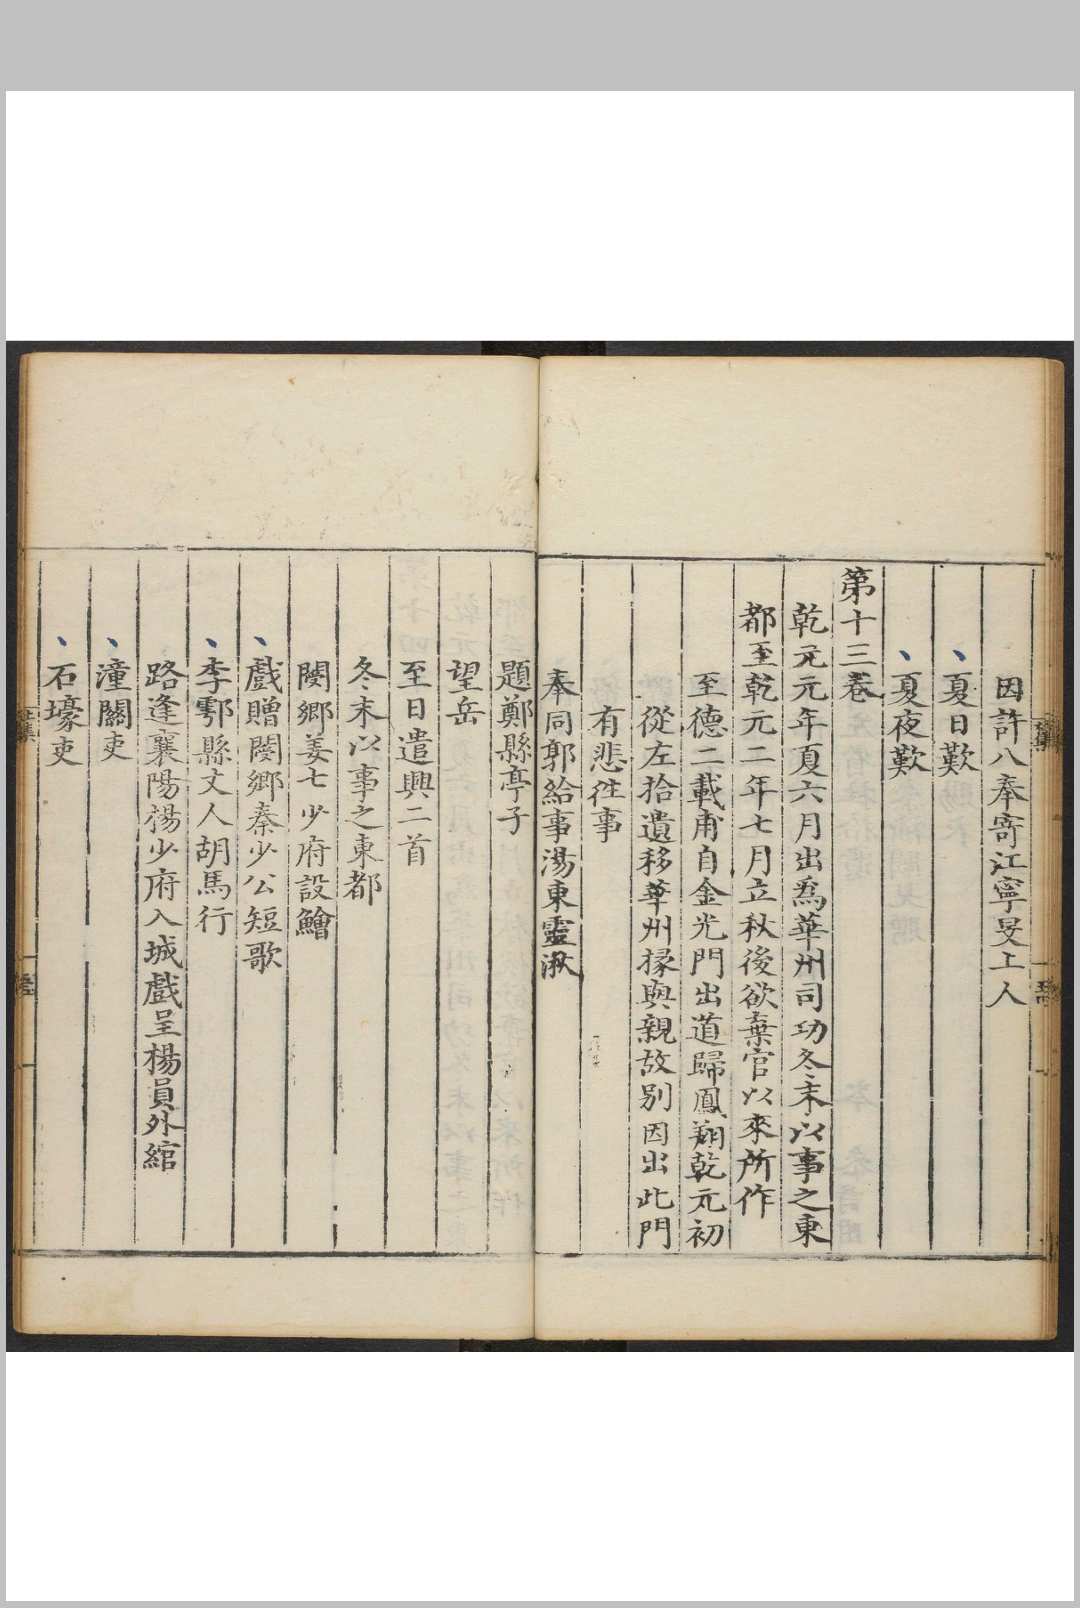 因許八奉寄江寧旻上人
、夏日歎
、夏夜歎
第十三卷
乾元元年夏六月出爲華州司功冬末以事之東
都至乾元二年七月立秋後欲棄官以來所作
至德二載甫自金光門出道歸鳳翔乾元初
從左拾遺移華州掾與親故別因出此門
有悲往事
奉同郭給事湯東靈湫
題鄭縣亭子
望岳
至日遣興二首
冬末以事之東都
閿鄉姜七少府設鱠
、戲贈閿鄉秦少公短歌
、李鄠縣丈人胡馬行
路逢襄陽楊少府入城戲呈楊員外綰
、潼關吏
、石壕吏